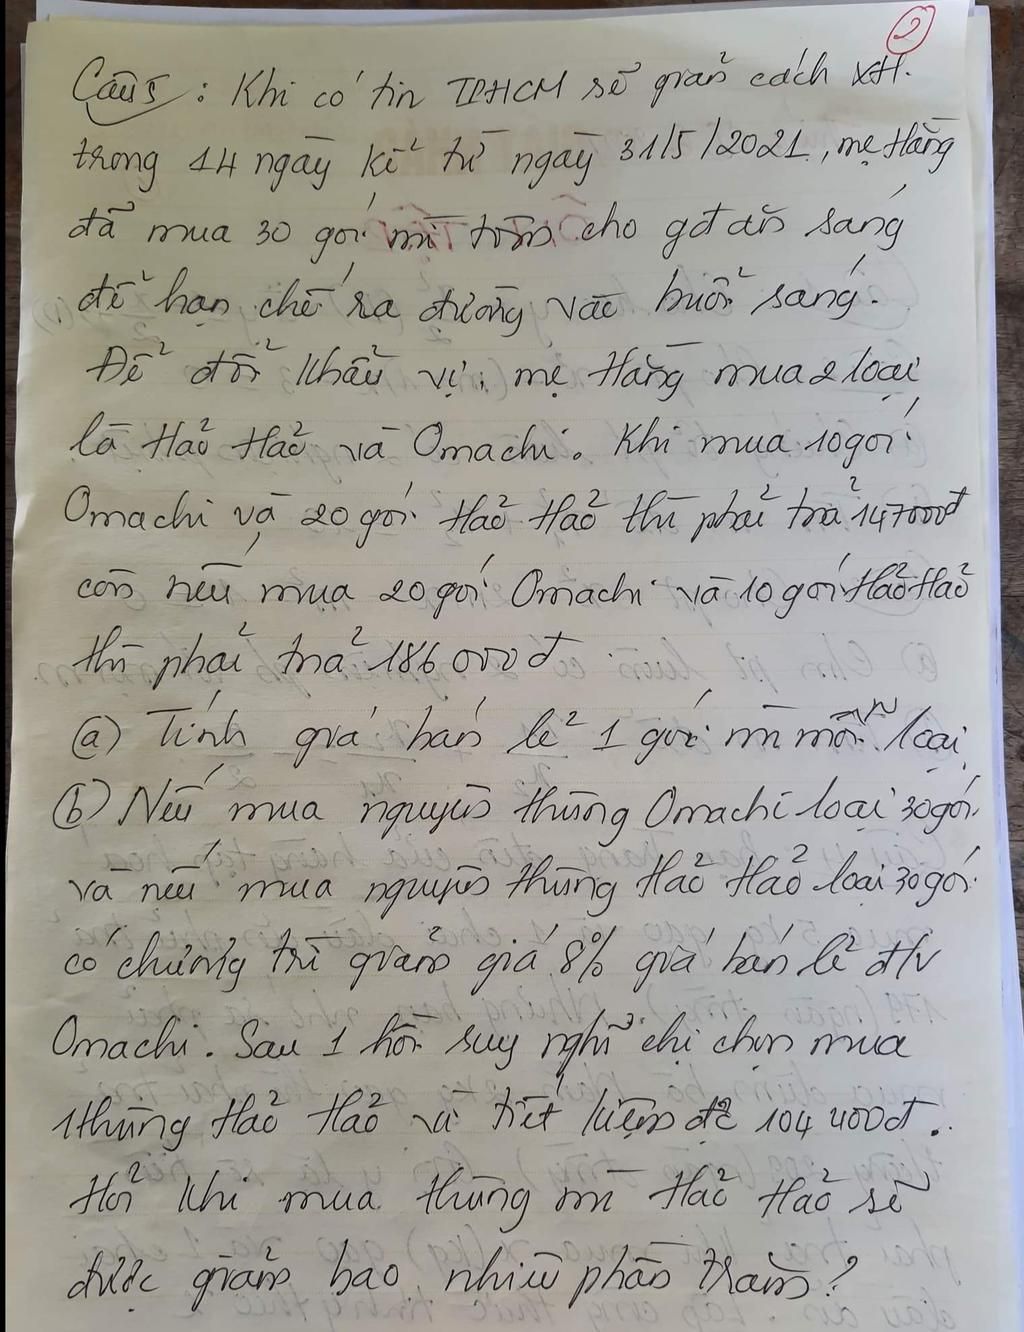 2
Câu 5 : Khi có tin TPHCM sẽ giãn cách XH.
trong 14 ngày kể từ ngày 31/5/2021, mẹ Hằng
đã mua 30 gói mì tôm cho gđ ăn sáng
để hạn chế ra đường vào buổi sáng.
Để đổi khẩu vị, mẹ Hằng mua 2 loại
là Hảo Hảo và Omachi. Khi mua 10 gói
Omachi và 20 gói Hảo Hảo thì phải trả 147000đ
còn nếu mua 20 gói Omachi và 10 gói Hảo Hảo
thì phải trả 186 000đ
a) Tính giá bán lẻ 1 gói mì mỗi loại
b) Nếu mua nguyên thùng Omachi loại 30 gói
và nếu mua nguyên thùng Hảo Hảo loại 30 gói
có chương trì giảm giá 8% giá bán lẻ đ/v
Omachi. Sau 1 hồi suy nghĩ chị chọn mua
1 thùng Hảo Hảo và tiết kiệm đc 104 400đ.
Hỏi khi mua thùng mì Hảo Hảo sẽ
được giảm bao nhiêu phần trăm?